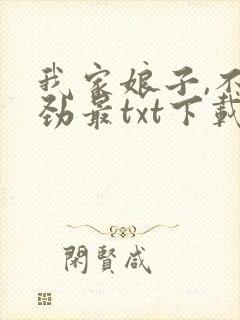 我家娘子,不
劲最txt下載
閑賢咸